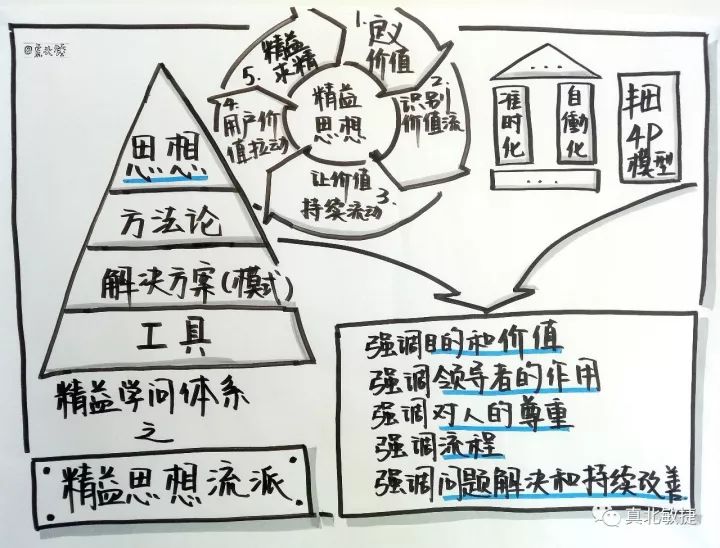 @真北敏捷
思想
方法论
解决方案(模式)
工具
精益学问体系
之
精益思想流派
精益
思想
1.定义
价值
2.识别
价值流
3.让价值
持续流动
4.用户价
值拉动
5.精益
求精
...
准时化
自働化
...
丰田
4P
模型
强调目的和价值
强调领导者的作用
强调对人的尊重
强调流程
强调问题解决和持续改善
真北敏捷